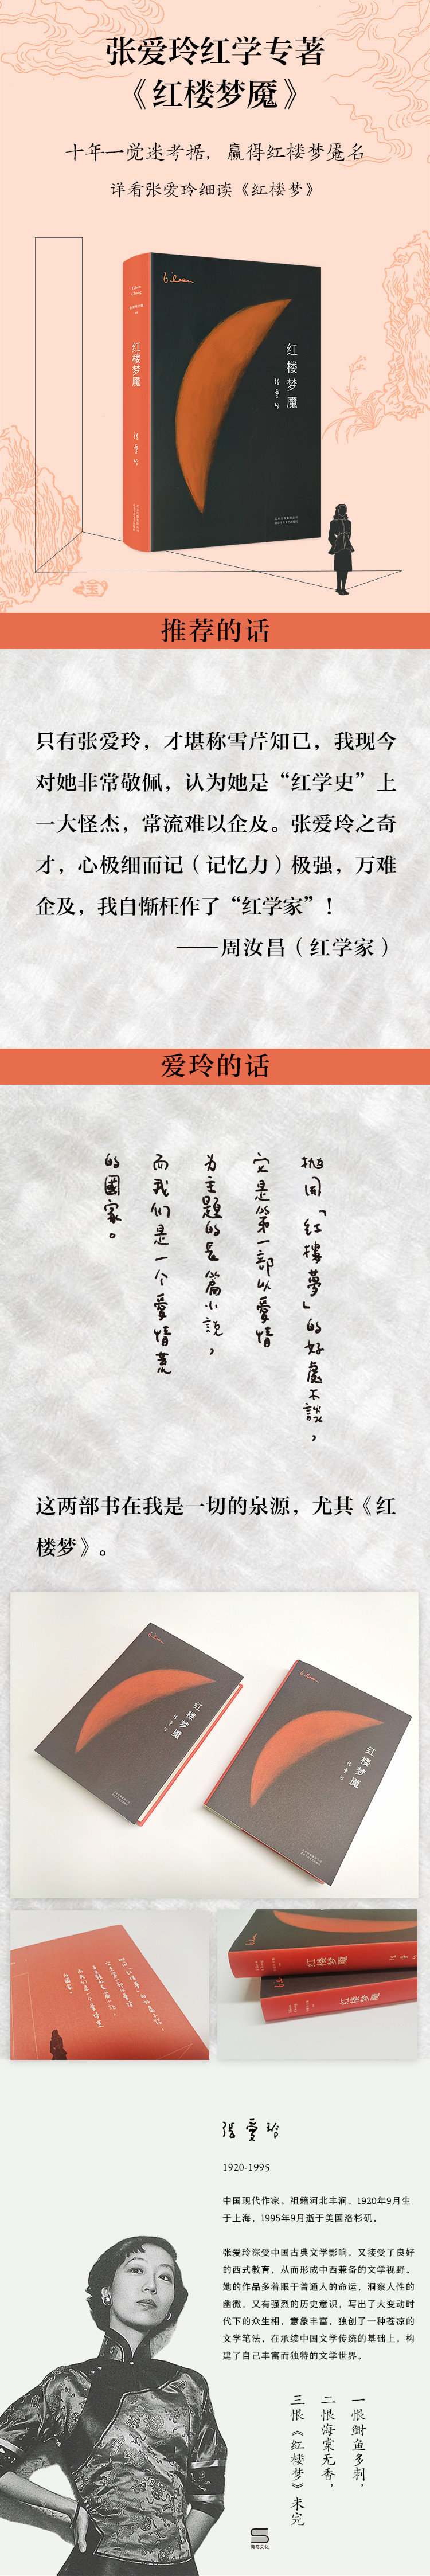 张爱玲红学专著
《红楼梦魇》
十年一觉迷考据，赢得红楼梦魇名
详看张爱玲细读《红楼梦》
Eileen
Chang
红楼梦魇
张爱玲
Eileen
红楼梦魇
张爱玲
推荐的话
只有张爱玲，才堪称雪芹知己，我现今
对她非常敬佩，认为她是“红学史”上
一大怪杰，常流难以企及。张爱玲之奇
才，心极细而记（记忆力）极强，万难
企及，我自惭枉作了“红学家”！
——周汝昌（红学家）
爱玲的话
抛开「红樓夢」的好處不談，
它是第一部以愛情
为主題的長篇小說，
而我们是一个愛情荒
的國家。
这两部书在我是一切的泉源，尤其《红
楼梦》。
Eileen
红楼梦魇
张爱玲
Eileen
红楼梦魇
张爱玲
红楼梦魇
红楼梦魇
张爱玲
1920-1995
中国现代作家。祖籍河北丰润，1920年9月生
于上海，1995年9月逝于美国洛杉矶。
张爱玲深受中国古典文学影响，又接受了良好
的西式教育，从而形成中西兼备的文学视野。
她的作品多着眼于普通人的命运，洞察人性的
幽微，又有强烈的历史意识，写出了大变动时
代下的众生相，意象丰富，独创了一种苍凉的
文学笔法，在承续中国文学传统的基础上，构
建了自己丰富而独特的文学世界。
一恨鲥鱼多刺，
二恨海棠无香，
三恨《红楼梦》未完
青马文化